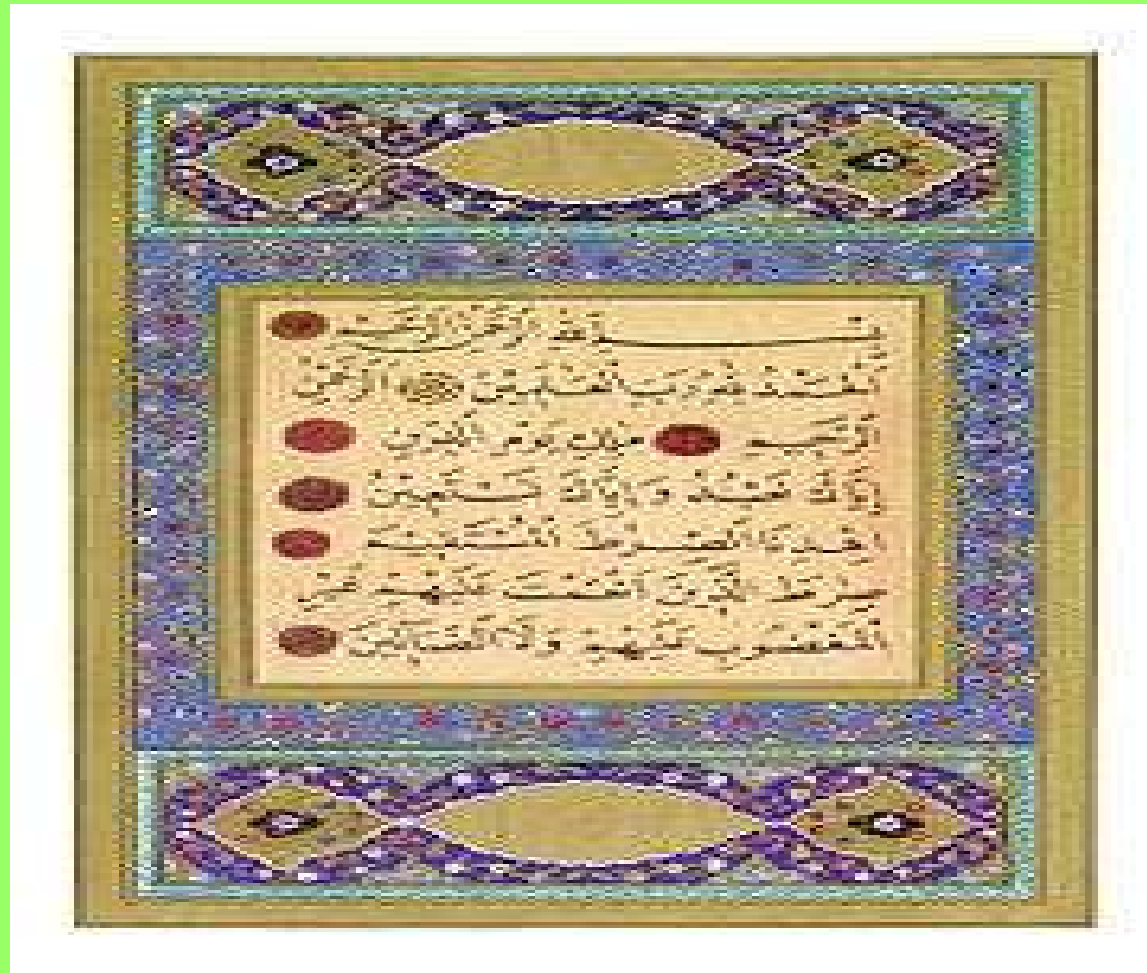 بسم الله الرحمن الرحيم
الحمد لله رب العالمين الرحمن
الرحيم مالك يوم الدين
إياك نعبد وإياك نستعين
اهدنا الصراط المستقيم
صراط الذين أنعمت عليهم غير
المغضوب عليهم ولا الضالين